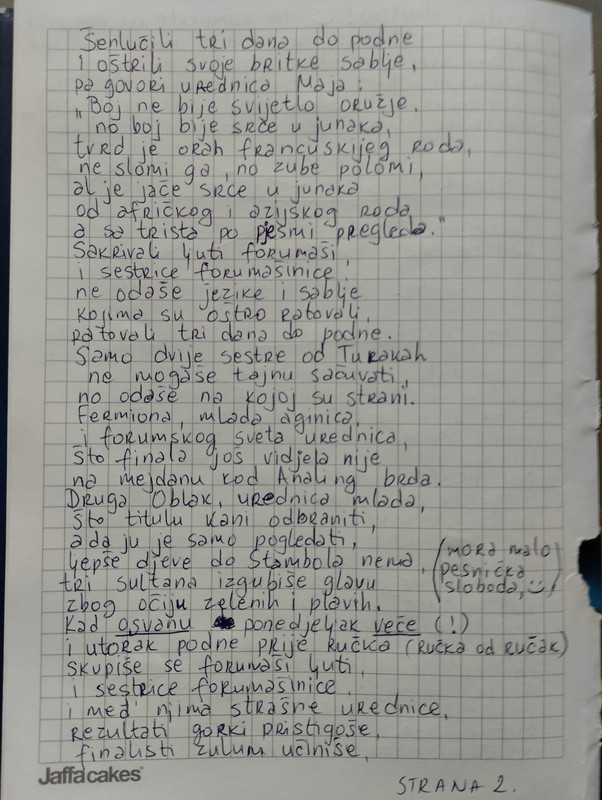 Šenlučili tri dana do podne
i oštrili svoje britke sablje,
pa govori urednica Maja:
"Boj ne bije svijetlo oružje.
no boj bije srce u junaka,
tvrd je orah francuskijeg roda,
ne slomi ga, no zube polomi,
al je jače srce u junaka
od afričkog i azijskog roda
a sa trista po pjesmi pregleda."
Sakrivali ljuti forumaši,
i sestrice forumašinice,
ne odaše jezike i sablje
kojima su oštro ratovali,
ratovali tri dana do podne.
Samo dvije sestre od Turakah
ne mogaše tajnu sačuvati,
no odaše na kojoj su strani.
Fermiona, mlada aginica,
i forumskog sveta urednica,
što finala još vidjela nije
na mejdanu kod Analing brda.
Druga Oblak, urednica mlada,
što titulu kani odbraniti,
a da ju je samo pogledati,
ljepše djeve do Stambola nema,
(mora malo
pesnička
sloboda, :))
tri sultana izgubiše glavu
zbog očiju zelenih i plavih.
Kad osvanu ponedjeljak veče (!)
i utorak podne prije ručka (Ručka od Ručak)
skupiše se forumaši ljuti,
i sestrice forumašinice,
i međ njima strašne urednice,
rezultati gorki pristigoše,
finalisti zulum učiniše,
Jaffacakes®
STRANA 2.